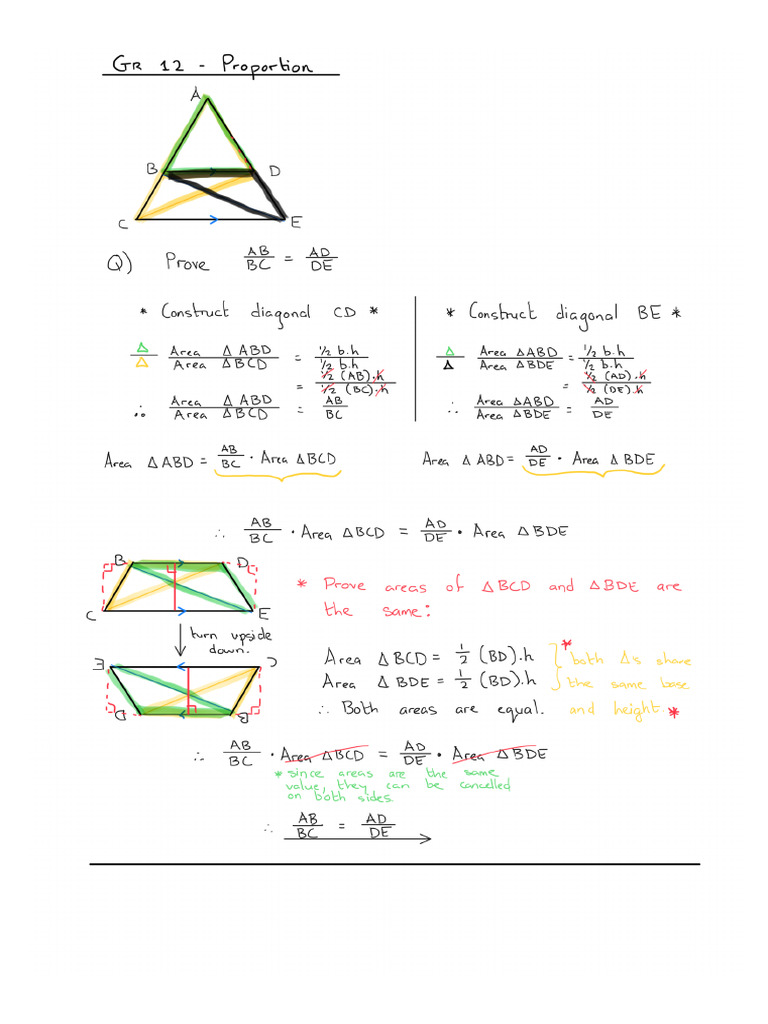 GR 12 - Proportion
A
B D
C E
Q) Prove AB/BC = AD/DE
* Construct diagonal CD *
Δ/Δ Area Δ ABD / Area Δ BCD = ½ b.h / ½ b.h
= ½ (AB).h / ½ (BC).h
∴ Area Δ ABD / Area Δ BCD = AB/BC
* Construct diagonal BE *
Δ/Δ Area Δ ABD / Area Δ BDE = ½ b.h / ½ b.h
= ½ (AD).h / ½ (DE).h
∴ Area Δ ABD / Area Δ BDE = AD/DE
Area Δ ABD = AB/BC · Area Δ BCD
Area Δ ABD = AD/DE · Area Δ BDE
∴ AB/BC · Area Δ BCD = AD/DE · Area Δ BDE
B D
C E
turn upside
down.
E C
D B
* Prove areas of Δ BCD and Δ BDE are
the same:
Area Δ BCD = 1/2 (BD).h
Area Δ BDE = 1/2 (BD).h
∴ Both areas are equal.
* both Δ's share
the same base
and height. *
∴ AB/BC · Area Δ BCD = AD/DE · Area Δ BDE
* since areas are the same
value, they can be cancelled
on both sides.
∴ AB/BC = AD/DE